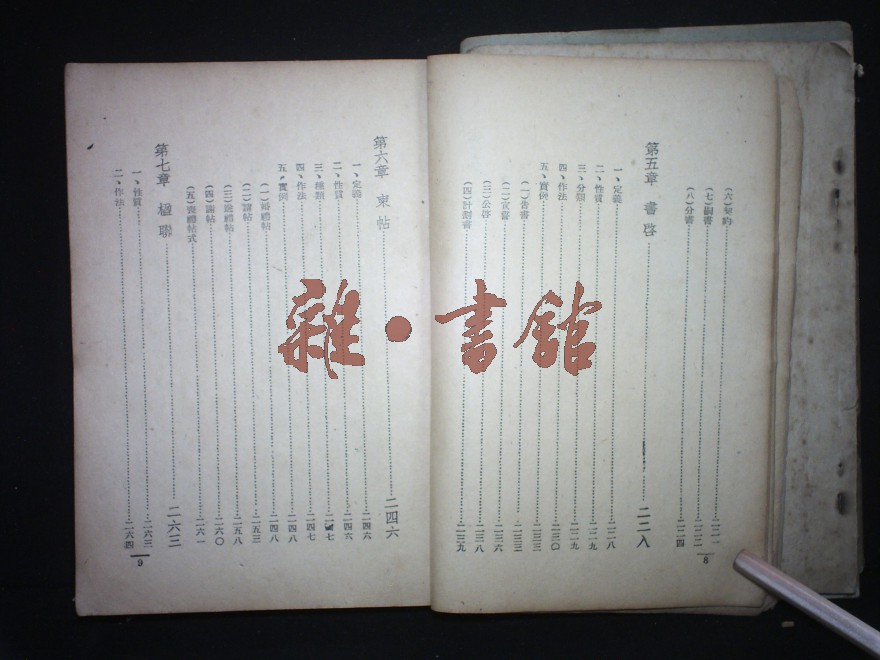 (六)契約……二二一
(七)嗣書……二二三
(八)分書……二二四
第五章 書啓……二二八
一、定義……二二八
二、性質……二二九
三、分類……二二九
四、作法……二三〇
五、實例……二三三
(一)告書……二三三
(三)公啓……二三八
(四)計劃書……二三九
8
第六章 柬帖……二四六
一、定義……二四六
二、性質……二四六
三、種類
四、作法……二四七
五、實例……二四八
(一)婚禮帖……二四八
(二)請帖……二五三
二五八
(四)謝帖……二六〇
(五)喪禮帖式……二六一
第七章 楹聯……二六三
一、性質……二六三
二、作法……二六四
9
雜·書館